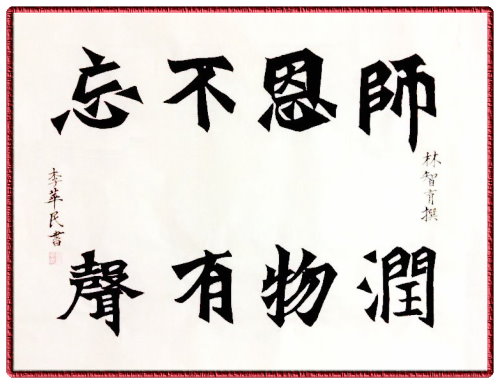 師恩不忘
潤物有聲
林智育撰
李華民書